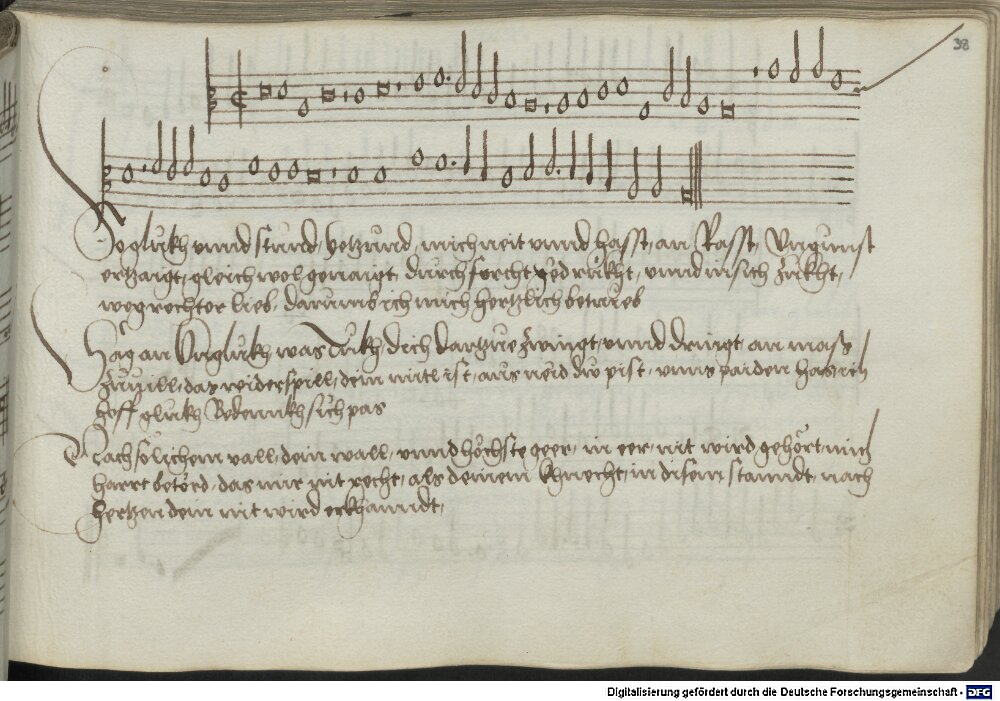 38
So glukh vnnd stund, yetzund, mich neit vnnd hasst, an Rasst, Vngunst
ertzaigt, gleich wol genaigt, durch forcht gedrukht, vnnd in sich zukht,
weg rechter lieb, darumb ich mich hertzlich betrueb
Sag an Unglukh was Tukh, dich dartzue zwingt, vnnd dringt, an mass
zuuill, das widerspill, dein mitl ist, aus neid du pist, vnns paiden has, ich
hoff glukh Bedennkh sich pas
Nach solichem vall, dein wall, vnnd höchste geer, in eer, nit wird gehört, mich
harrt betörd, das mir nit recht, als deinem khnecht, in disem stanndt, nach
hertzen dein nit wird erkhanndt,
Digitalisierung gefördert durch die Deutsche Forschungsgemeinschaft - DFG